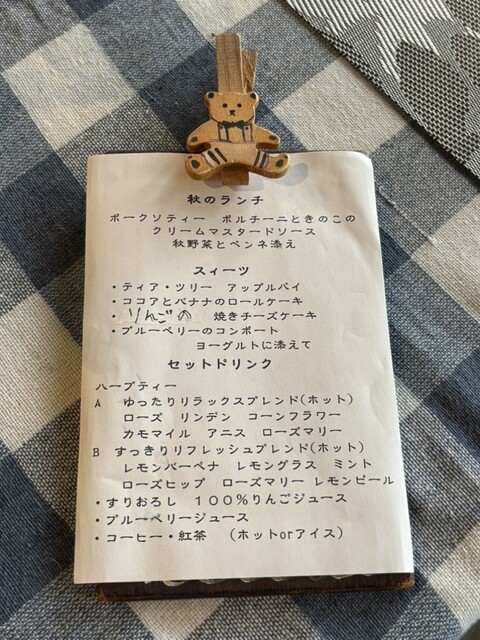 秋のランチ
ポークソティー　ポルチーニときのこの
クリームマスタードソース
秋野菜とペンネ添え
スィーツ
・ティア・ツリー　アップルパイ
・ココアとバナナのロールケーキ
・りんごの　焼きチーズケーキ
・ブルーベリーのコンポート
ヨーグルトに添えて
セットドリンク
ハーブティー
A　ゆったりリラックスブレンド(ホット)
ローズ　リンデン　コーンフラワー
カモマイル　アニス　ローズマリー
B　すっきりリフレッシュブレンド(ホット)
レモンバーベナ　レモングラス　ミント
ローズヒップ　ローズマリー　レモンピール
・すりおろし　１００％りんごジュース
・ブルーベリージュース
・コーヒー・紅茶　（ホットorアイス）